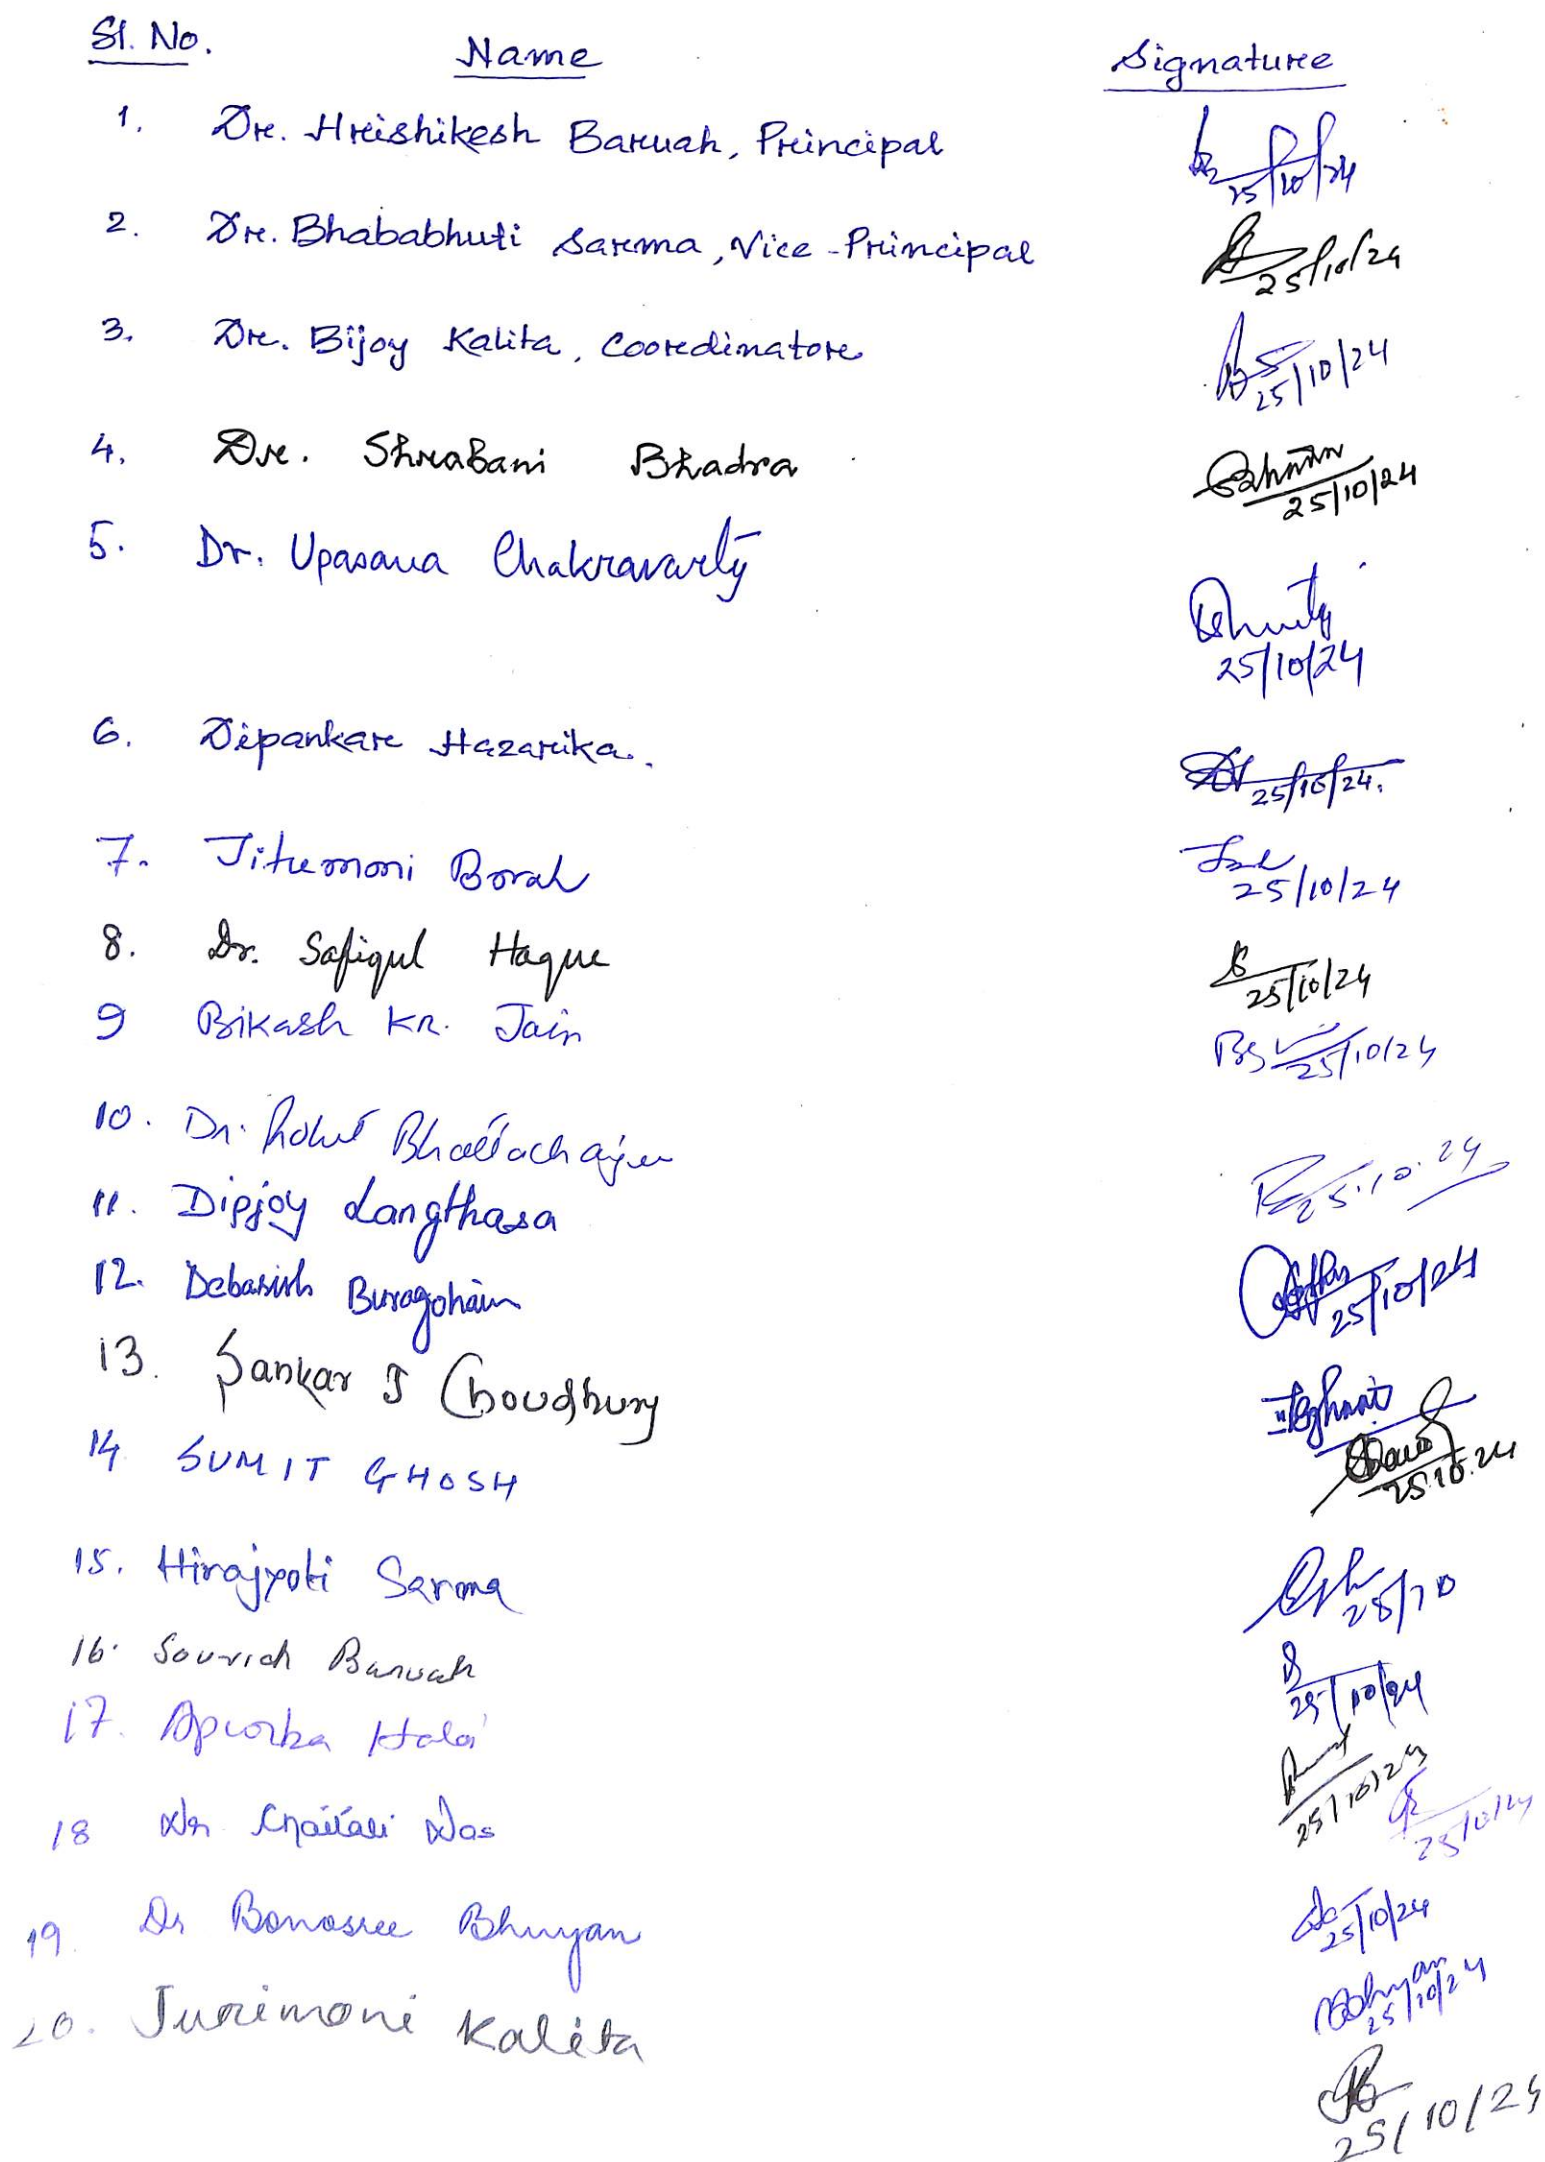 Sl. No. Name Signature
1. Dr. Hrishikesh Baruah, Principal 25/10/24
2. Dr. Bhababhuti Sarma, Vice-Principal 25/10/24
3. Dr. Bijoy Kalita, Coordinator 25/10/24
4. Dr. Shrabani Bhadra 25/10/24
5. Dr. Upasana Chakravarty
25/10/24
6. Dipankar Hazarika. 25/10/24.
7. Jitumoni Borah 25/10/24
8. Dr. Safiqul Haque 25/10/24
9 Bikash KR. Jain 25/10/24
10. Dr. Rohit Bhattacharjee 25.10.24
11. Dipjoy Langthasa
12. Debasish Buragohain 25/10/24
13. Sankar J Choudhury
14 SUMIT GHOSH 25.10.24
15. Hirajyoti Sarma 25/10
16. Sourich Baruah 25/10/24
17. Apurba Haloi 25/10/24
18 Dr Chaitali Das 25/10/24
19. Dr Bonasree Bhuyan 25/10/24
20. Jurimoni Kalita Bhuyan 25/10/24
25/10/24